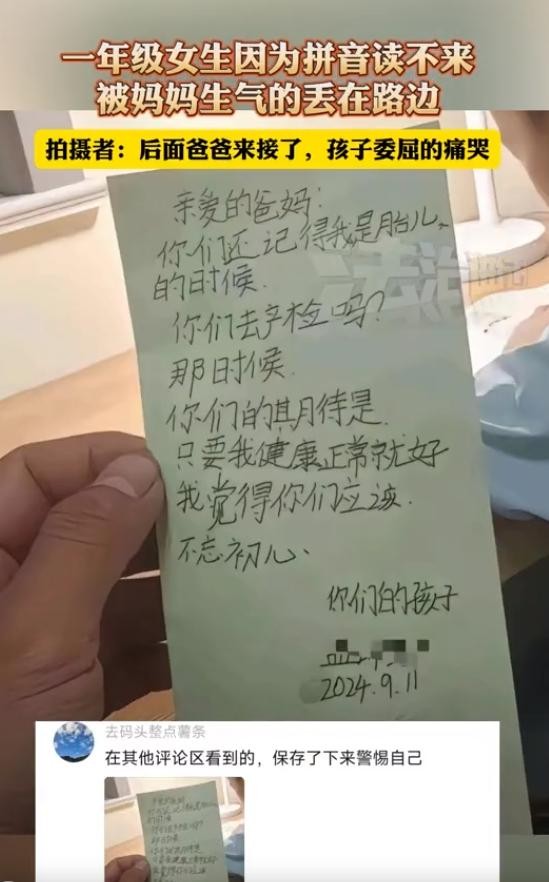 一年级女生因为拼音读不来
被妈妈生气的丢在路边
拍摄者：后面爸爸来接了，孩子委屈的痛哭
亲爱的爸妈：
你们还记得我是胎儿、
的时候.
你们去产检吗？
那时候.
你们的期待是.
只要我健康正常就好
我觉得你们应该.
不忘初心、
你们的孩子
2024.9.11
去码头整点薯条
在其他评论区看到的，保存了下来警惕自己